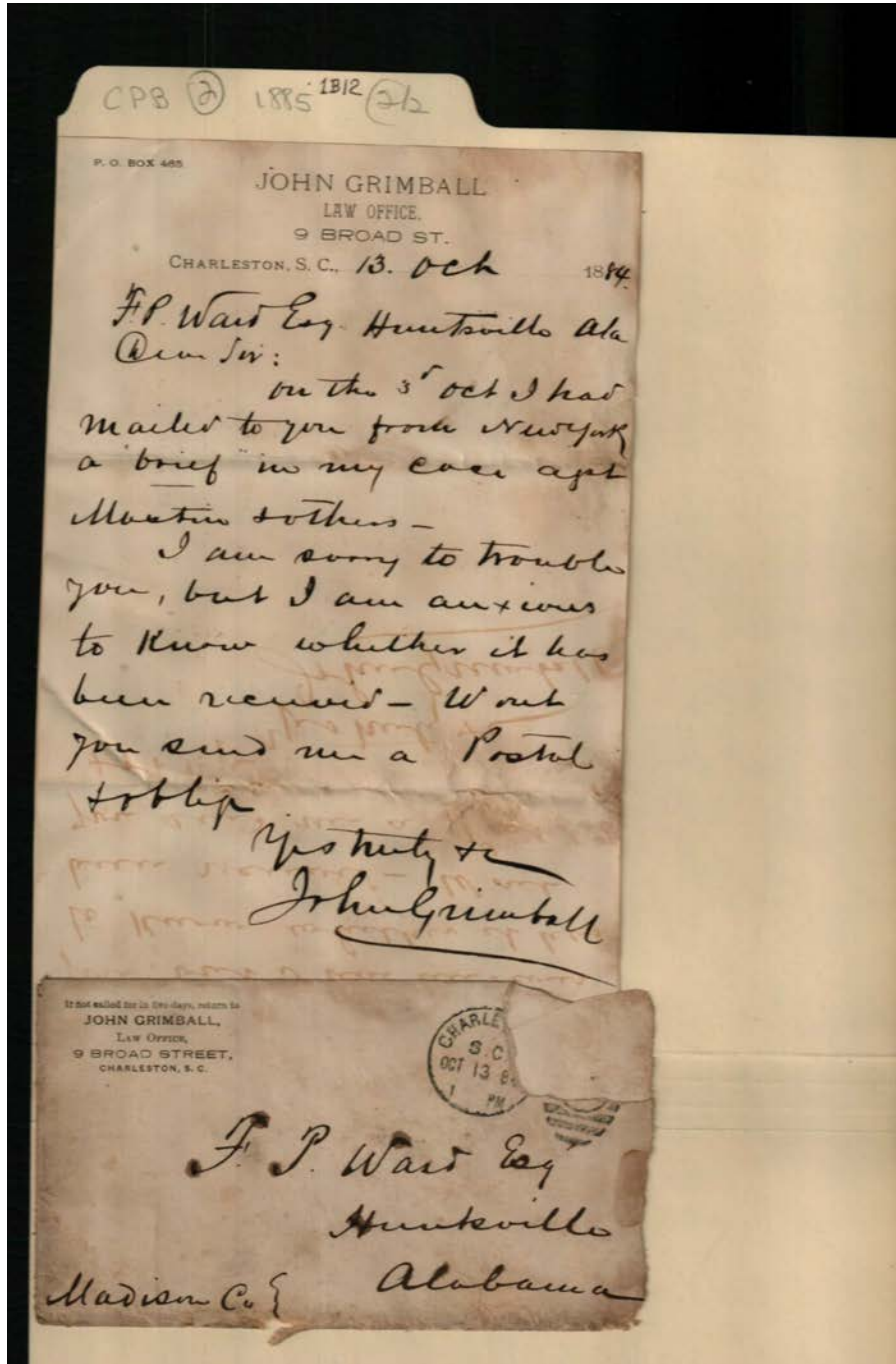 CPB 2 1885 1B12 2/2
P. O. BOX 465
JOHN GRIMBALL
LAW OFFICE,
9 BROAD ST.
CHARLESTON, S. C., 13. Oct 1884.
F. P. Ward Esq. Huntsville Ala
Dear Sir:
on the 3d Oct I had
mailed to you from New York
a "brief" in my case agst
Martin & others –
I am sorry to trouble
you, but I am anxious
to Know whether it has
been received – Wont
you send me a Postal
& oblige
Yrs truly &c
John Grimball
If not called for in five days, return to
JOHN GRIMBALL,
LAW OFFICE,
9 BROAD STREET,
CHARLESTON, S. C.
CHARLE
S. C
OCT 13 8
1 PM
F. P. Ward Esq
Huntsville
Alabama
Madison Co